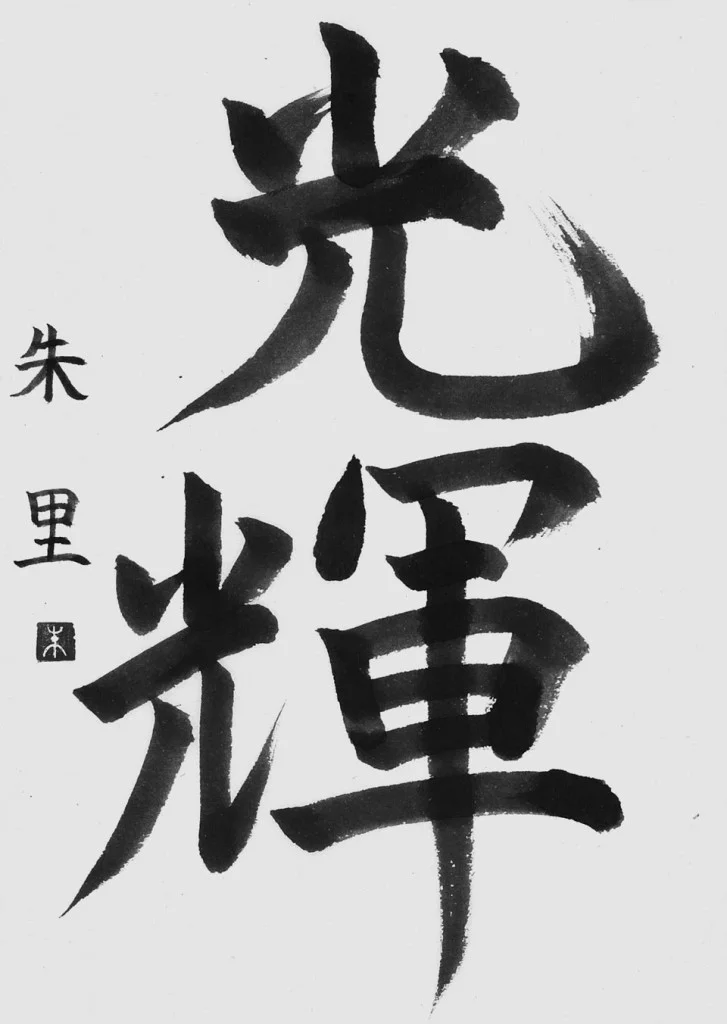 光輝
朱里
朱